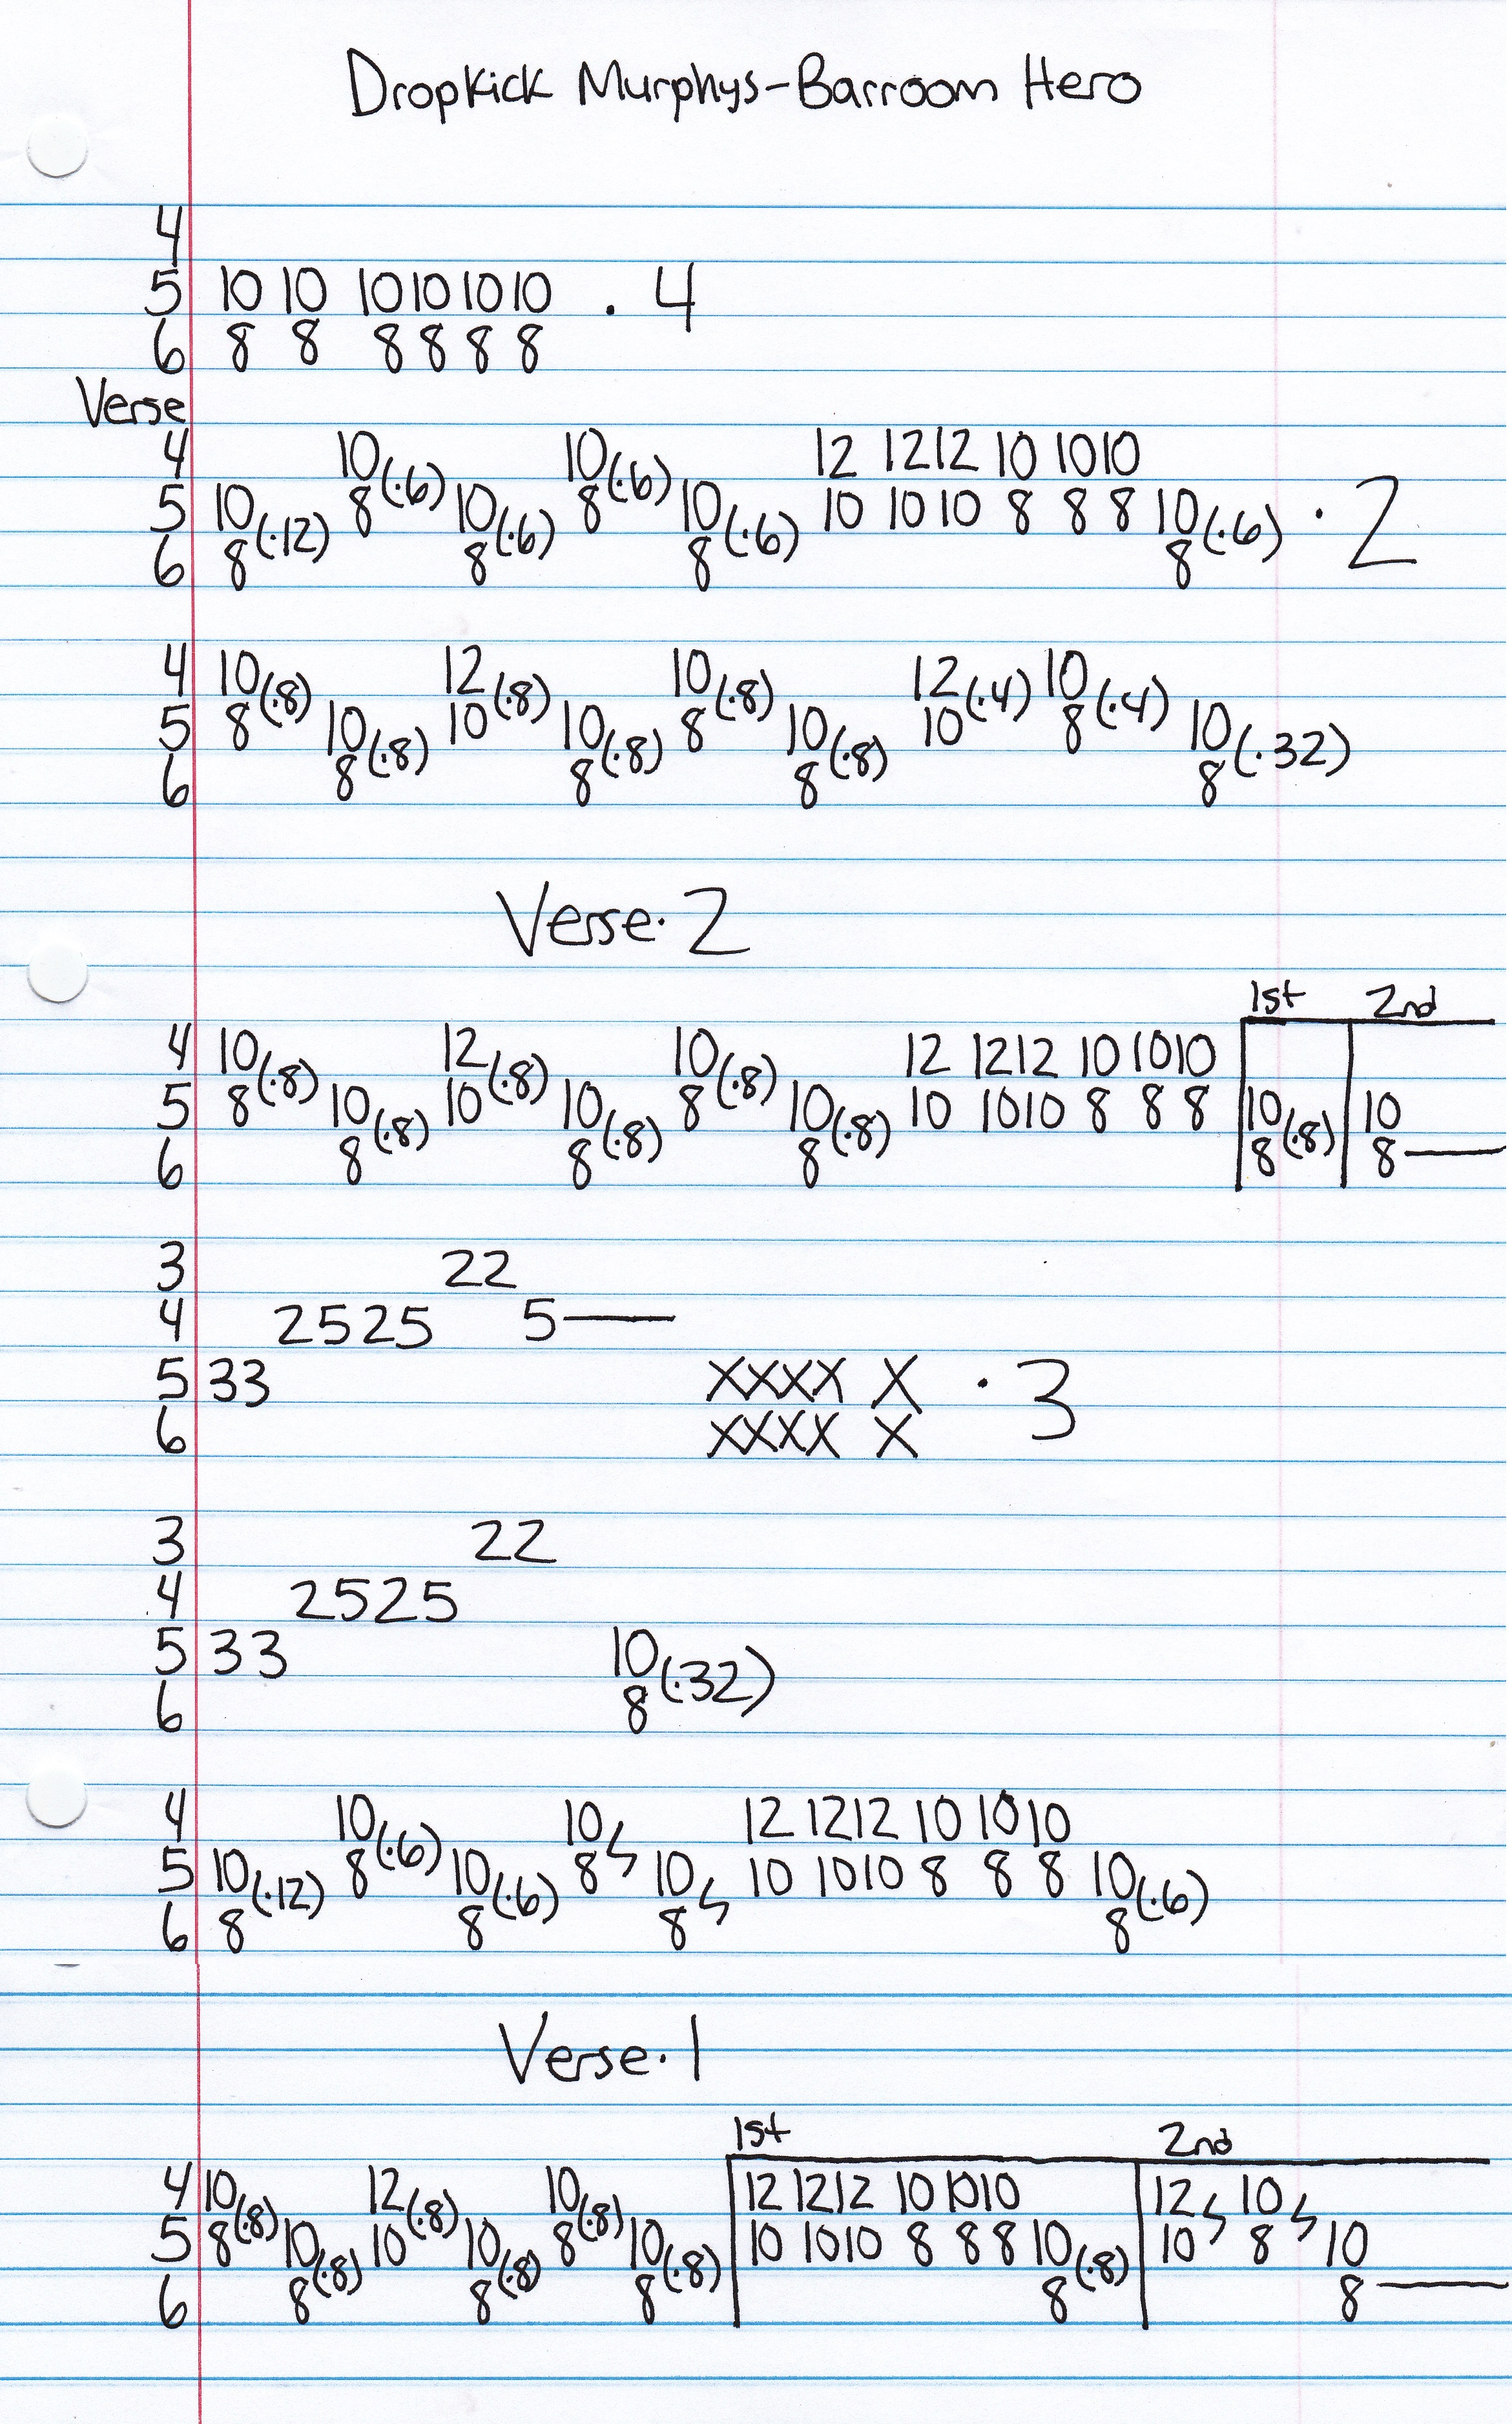 Dropkick Murphys-Barroom Hero
4
5 10 10 10 10 10 10 · 4
6 8 8 8 8 8 8
Verse
4 10(·6) 10(·6) 12 12 12 10 10 10
5 10(·12) 8 10(·6) 8 10(·6) 10 10 10 8 8 8 10(·6) · 2
6 8 8 8 8
4 10(·8) 12(·8) 10(·8) 12(·4) 10(·4)
5 8 10(·8) 10 10(·8) 8 10(·8) 10 8 10(·32)
6 8 8 8 8
Verse·2
1st 2nd
4 10(·8) 12(·8) 10(·8) 12 12 12 10 10 10
5 8 10(·8) 10 10(·8) 8 10(·8) 10 10 10 8 8 8 10(·8) 10
6 8 8 8 8 8
3 22
4 2525 5
5 33 XXXX X · 3
6 XXXX X
3 22
4 2525
5 33 10(·32)
6 8
4 10(·6) 10 12 12 12 10 10 10
5 10(·12) 8 10(·6) 8 10 10 10 10 8 8 8 10(·6)
6 8 8 8 8
Verse·1
1st 2nd
4 10(·8) 12(·8) 10(·8) 12 12 12 10 10 10 12 10
5 8 10(·8) 10 10(·8) 8 10(·8) 10 10 10 8 8 8 10(·8) 10 8 10
6 8 8 8 8 8